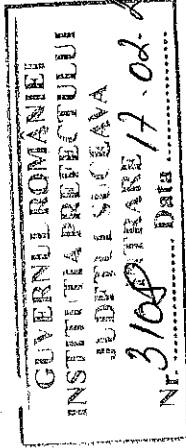 GUVERNUL ROMÂNIEI
INSTITUȚIA PREFECTULUI
JUDEȚUL SUCEAVA
Nr. 3108 Data 17.02.